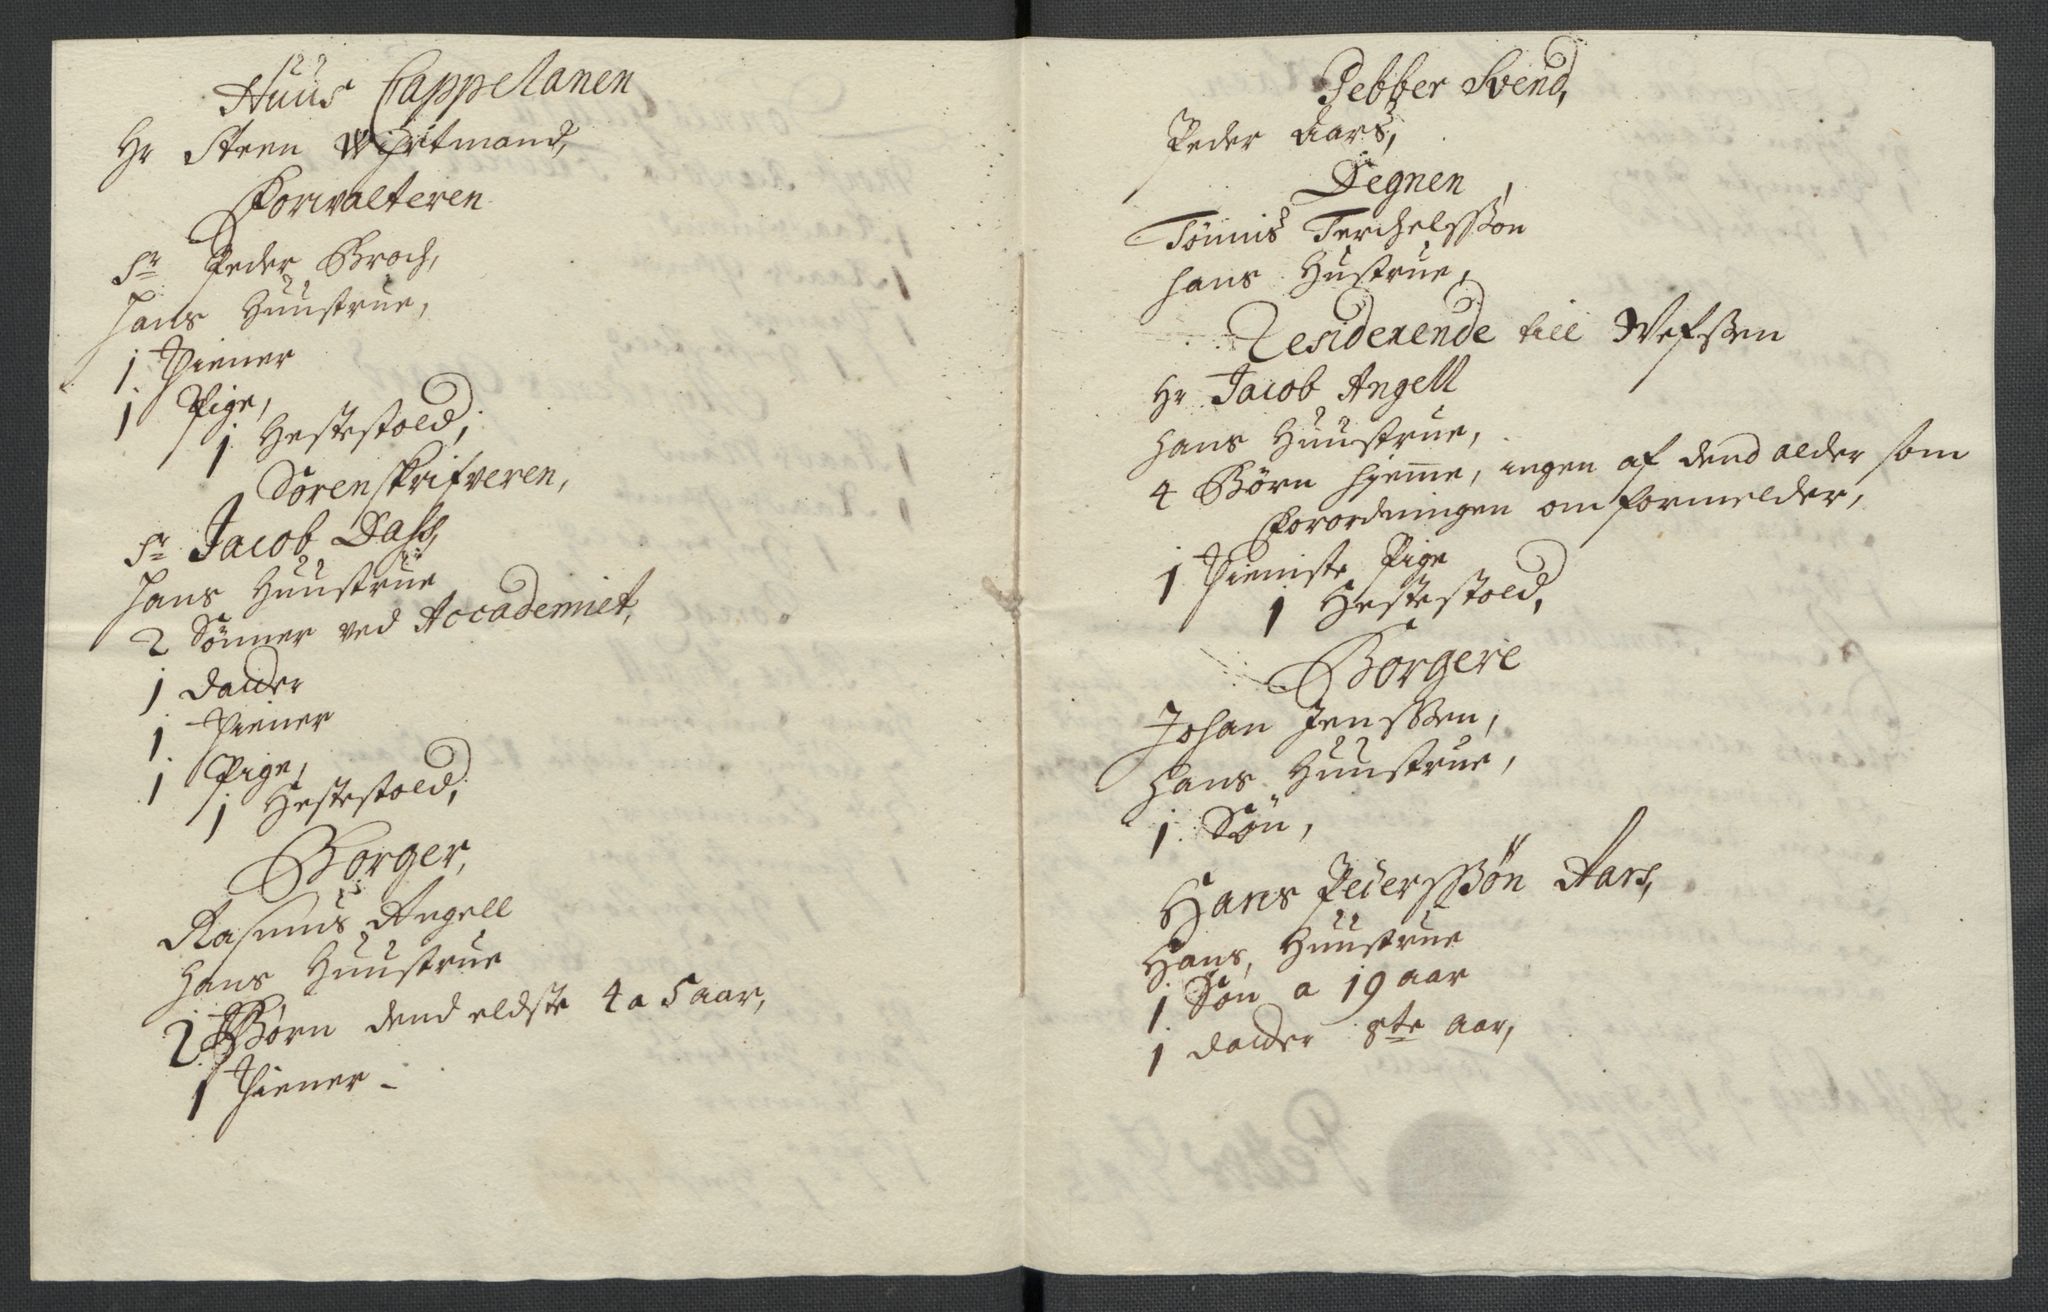 Huus Cappelanen
Hr Steen Wirtmand,
Forwalteren
Sr Peder Broch,
hans Huustrue,
1 Thiener
1 Pige,
1 Hestefold,
Sorenskrifveren,
Sr Jacob Dass,
hans Huustrue
2 Sønner ved Accademiet,
1 datter
1 Thiener
1 Pige,
1 Hestefold,
Borger,
Rasmus Angell
hans Huustrue
2 Børn dend eldste 4 a 5 aar,
1 Thiener -
Pebber Svend,
Peder Aars,
Degnen
Tønnis Terchelssøn
hans Hustrue,
Residerende till Wefssen
Hr Jacob Angell
hans Huustrue,
4 Børn hieme, ingen af dend alder som
Forordningen omformelder,
1 Thieniste Pige
1 Hestefold,
Borgere
Johan Jenssen,
hans Huustrue,
1 Søn,
Hans Pederssøn Aars,
Hans, Huustrue
1 Søn a 19 aar
1 datter 8te aar,